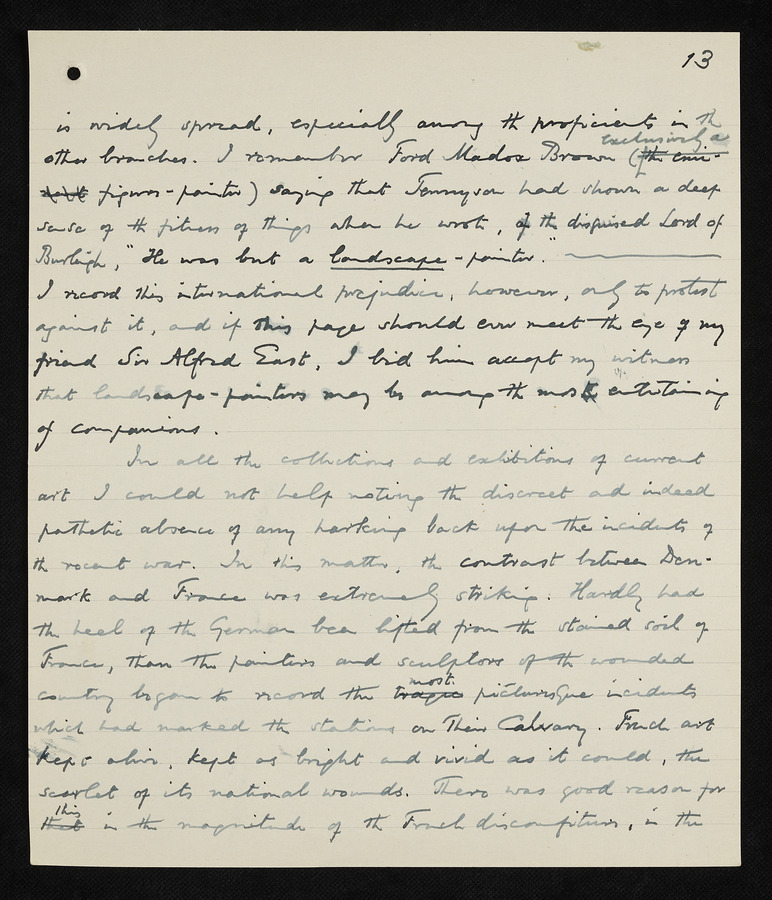 13
is widely spread, especially among the proficients in the
other branches. I remember Ford Madox Brown (exclusively a
figure-painter) saying that Tennyson had shown a deep
sense of the fitness of things when he wrote, of the disguised Lord of
Burleigh, "He was but a landscape-painter."
I record this international prejudice, however, only to protest
against it, and if this page should ever meet the eye of my
friend Sir Alfred East, I bid him accept my witness
that landscape-painters may be among the most entertaining
of companions.
In all the collections and exhibitions of current
art I could not help noting the discreet and indeed
pathetic absence of any harking back upon the incidents of
the recent war. In this matter, the contrast between Den-
mark and France was extremely striking. Hardly had
the heel of the German been lifted from the stained soil of
France, than the painters and sculptors of the wounded
country began to record the tragic most picturesque incidents
which had marked the stations on Their Calvary. French art
kept alive, kept as bright and vivid as it could, the
scarlet of its national wounds. There was good reason for
that this in the magnitude of the French discomfiture, in the